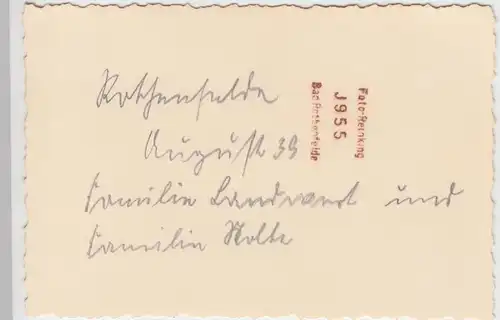 Rothenfelde
August 39
Familie Landwart und
Familie Nolte
Foto-Reinking
J955
Bad Rothenfelde